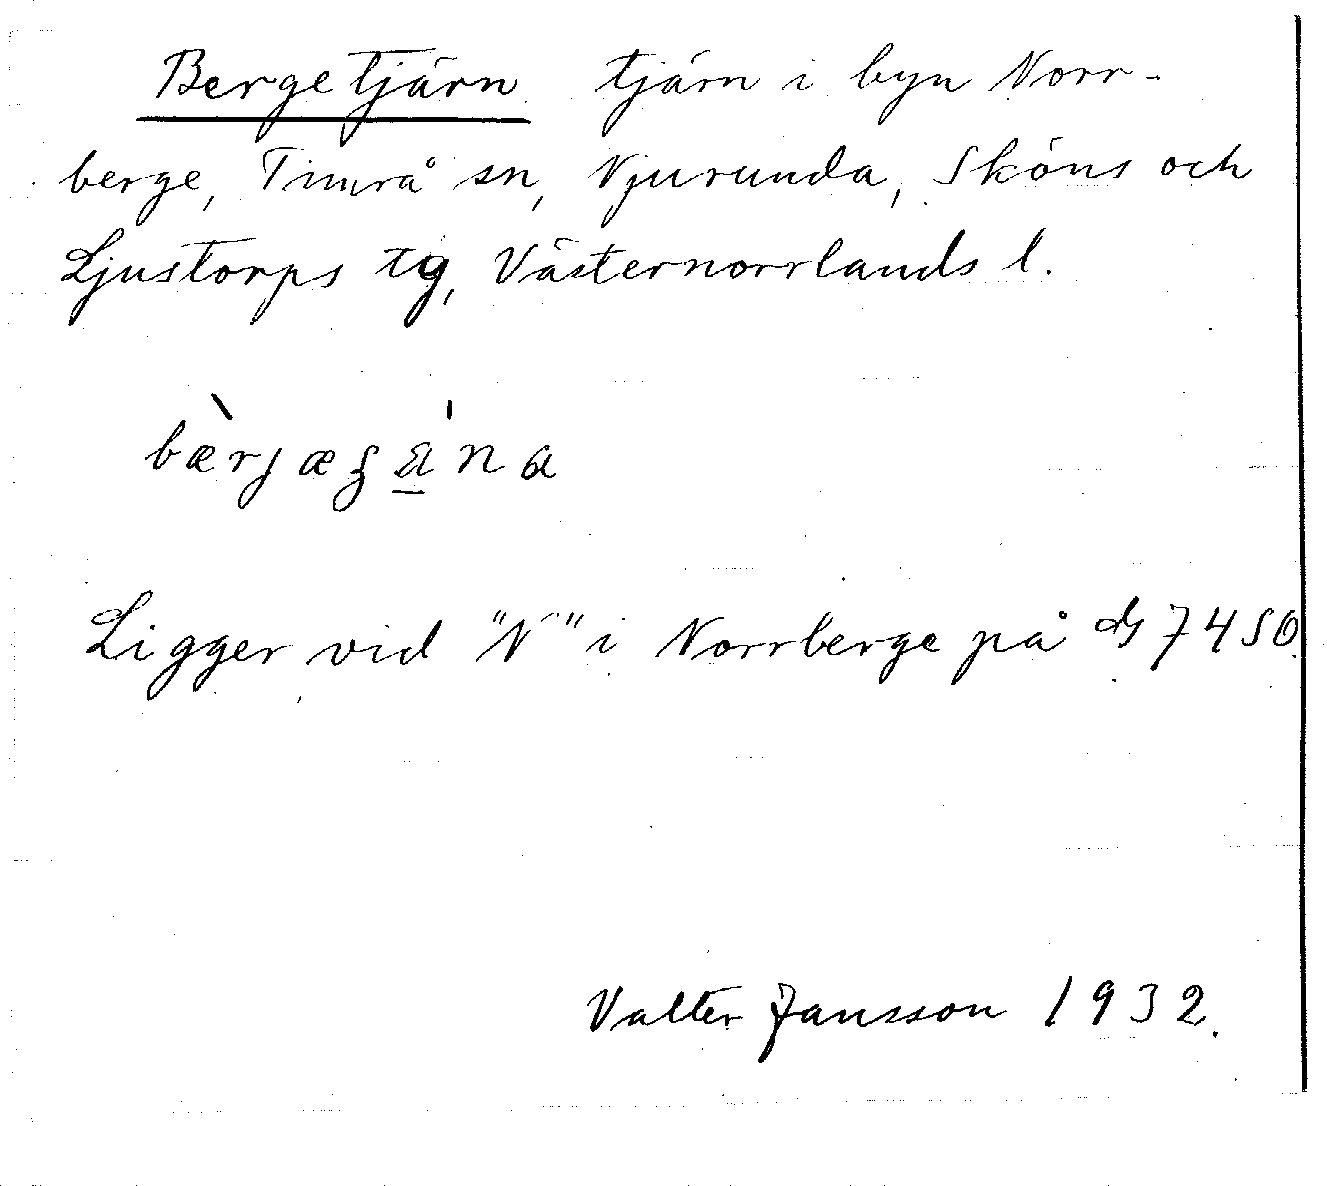 Bergetjärn tjärn i byn Norr-
berge, Timrå sn, Njurunda, Sköns och
Ljustorps tg, Västernorrlands l.
Ligger vid "N" i Norrberge på
Valter Jansson 1932.